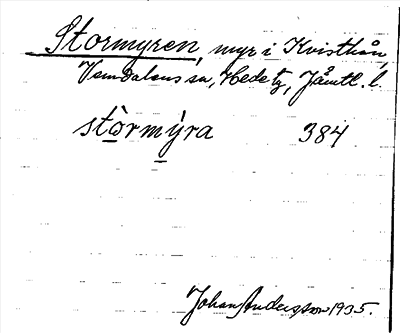 Stormyren, myr i Kvisthån,
Vemdalens sn, Hede tg, Jämtl. l.
stòrmýra 384
Johan Andersson 1935.